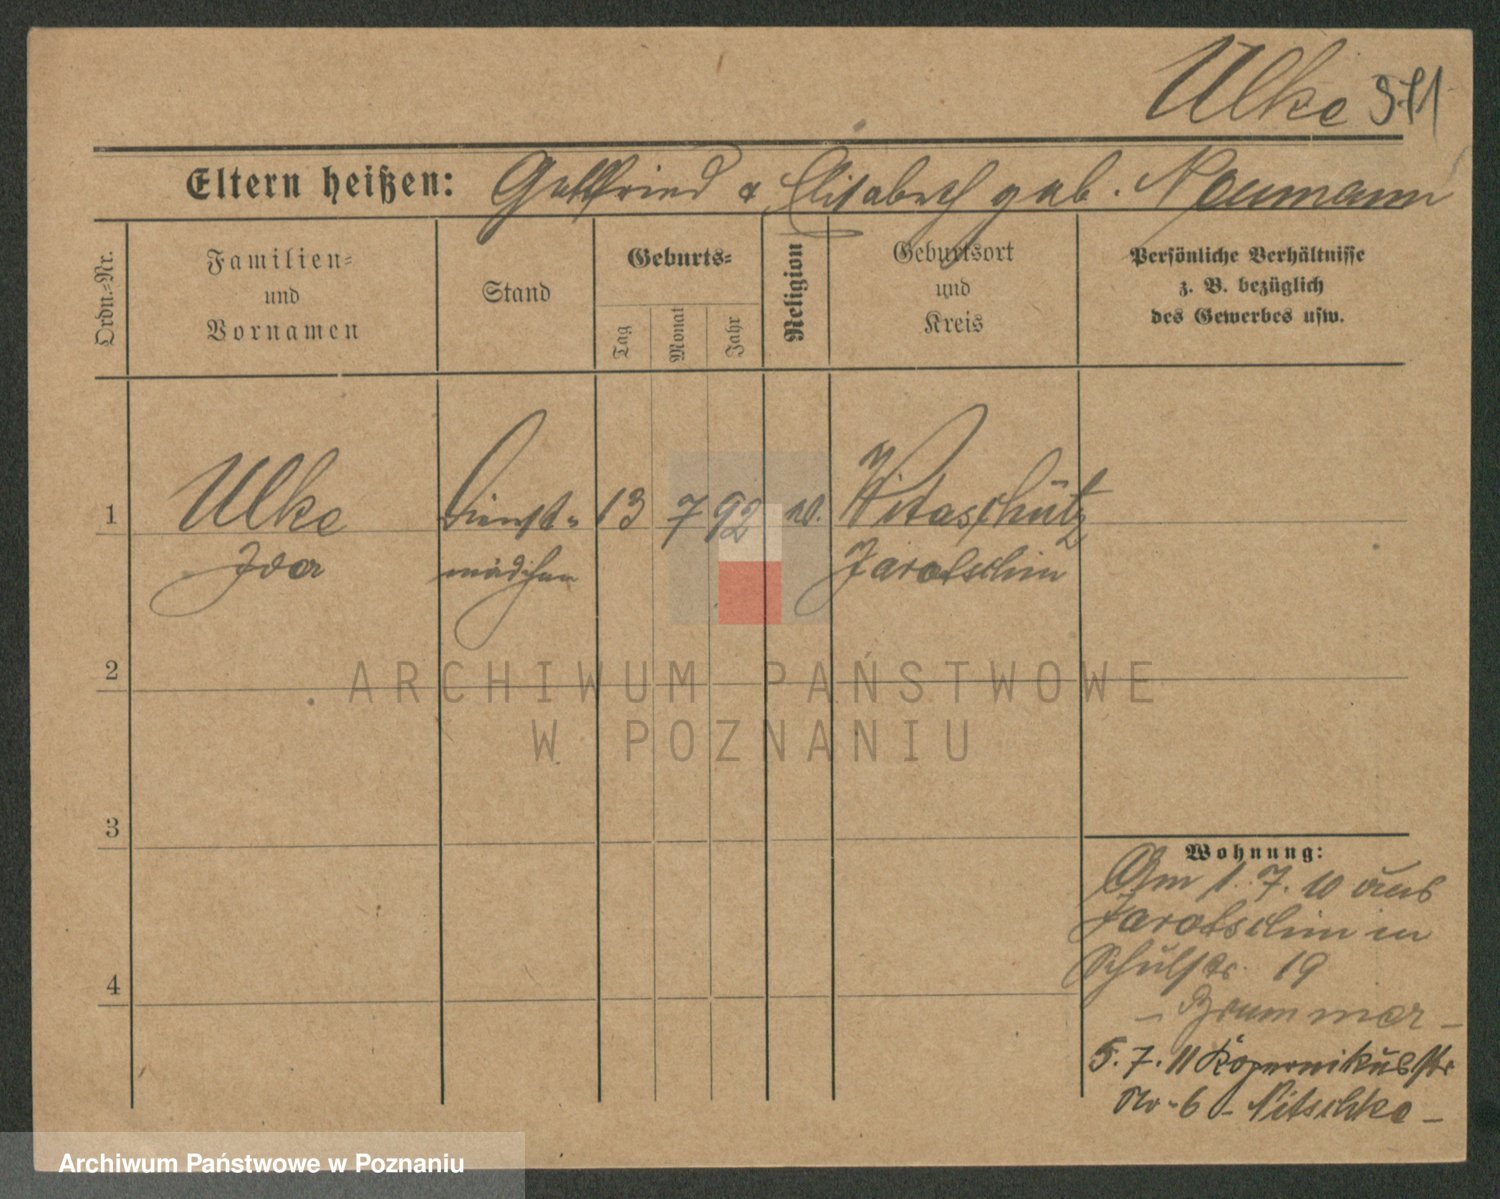 Ulke 511
Eltern heißen: Gottfried & Elisabeth geb. Neumann
Ordn.-Nr.
Familien-
und
Vornamen
Stand
Geburts-
Tag
Monat
Jahr
Religion
Geburtsort
und
Kreis
Persönliche Verhältnisse
z. B. bezüglich
des Gewerbes usw.
1 Ulke Dienst- 13 7 92 Witaschütz
Ida mädchen Jarotschin
2
3
4
Wohnung:
Am 1. 7. 10 aus
Jarotschin in
Schulstr. 19
- Brummer -
5. 7. 11 Kopernikusstr
No - 6 - Nitschke -
ARCHIWUM PAŃSTWOWE
W POZNANIU
Archiwum Państwowe w Poznaniu